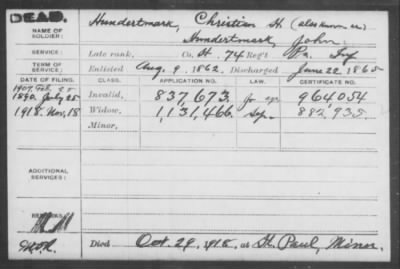 DEAD.
NAME OF SOLDIER: Hundertmark, Christian H. (also known as
Hundertmark, John.
SERVICE: Late rank, Co. H. 74 Reg't Pa. Inf
TERM OF SERVICE: Enlisted Aug. 9, 1862, Discharged June 22, 1865
DATE OF FILING. CLASS. APPLICATION NO. LAW. CERTIFICATE NO.
1907, Feb. 25
1890, July 25 Invalid, 837,673. 964,054
1918. Nov, 18 Widow, 1,131,466. Sep. 882,935.
Minor,
ADDITIONAL SERVICES:
REMARKS:
Died Oct. 29, 1918, at St. Paul, Minn.